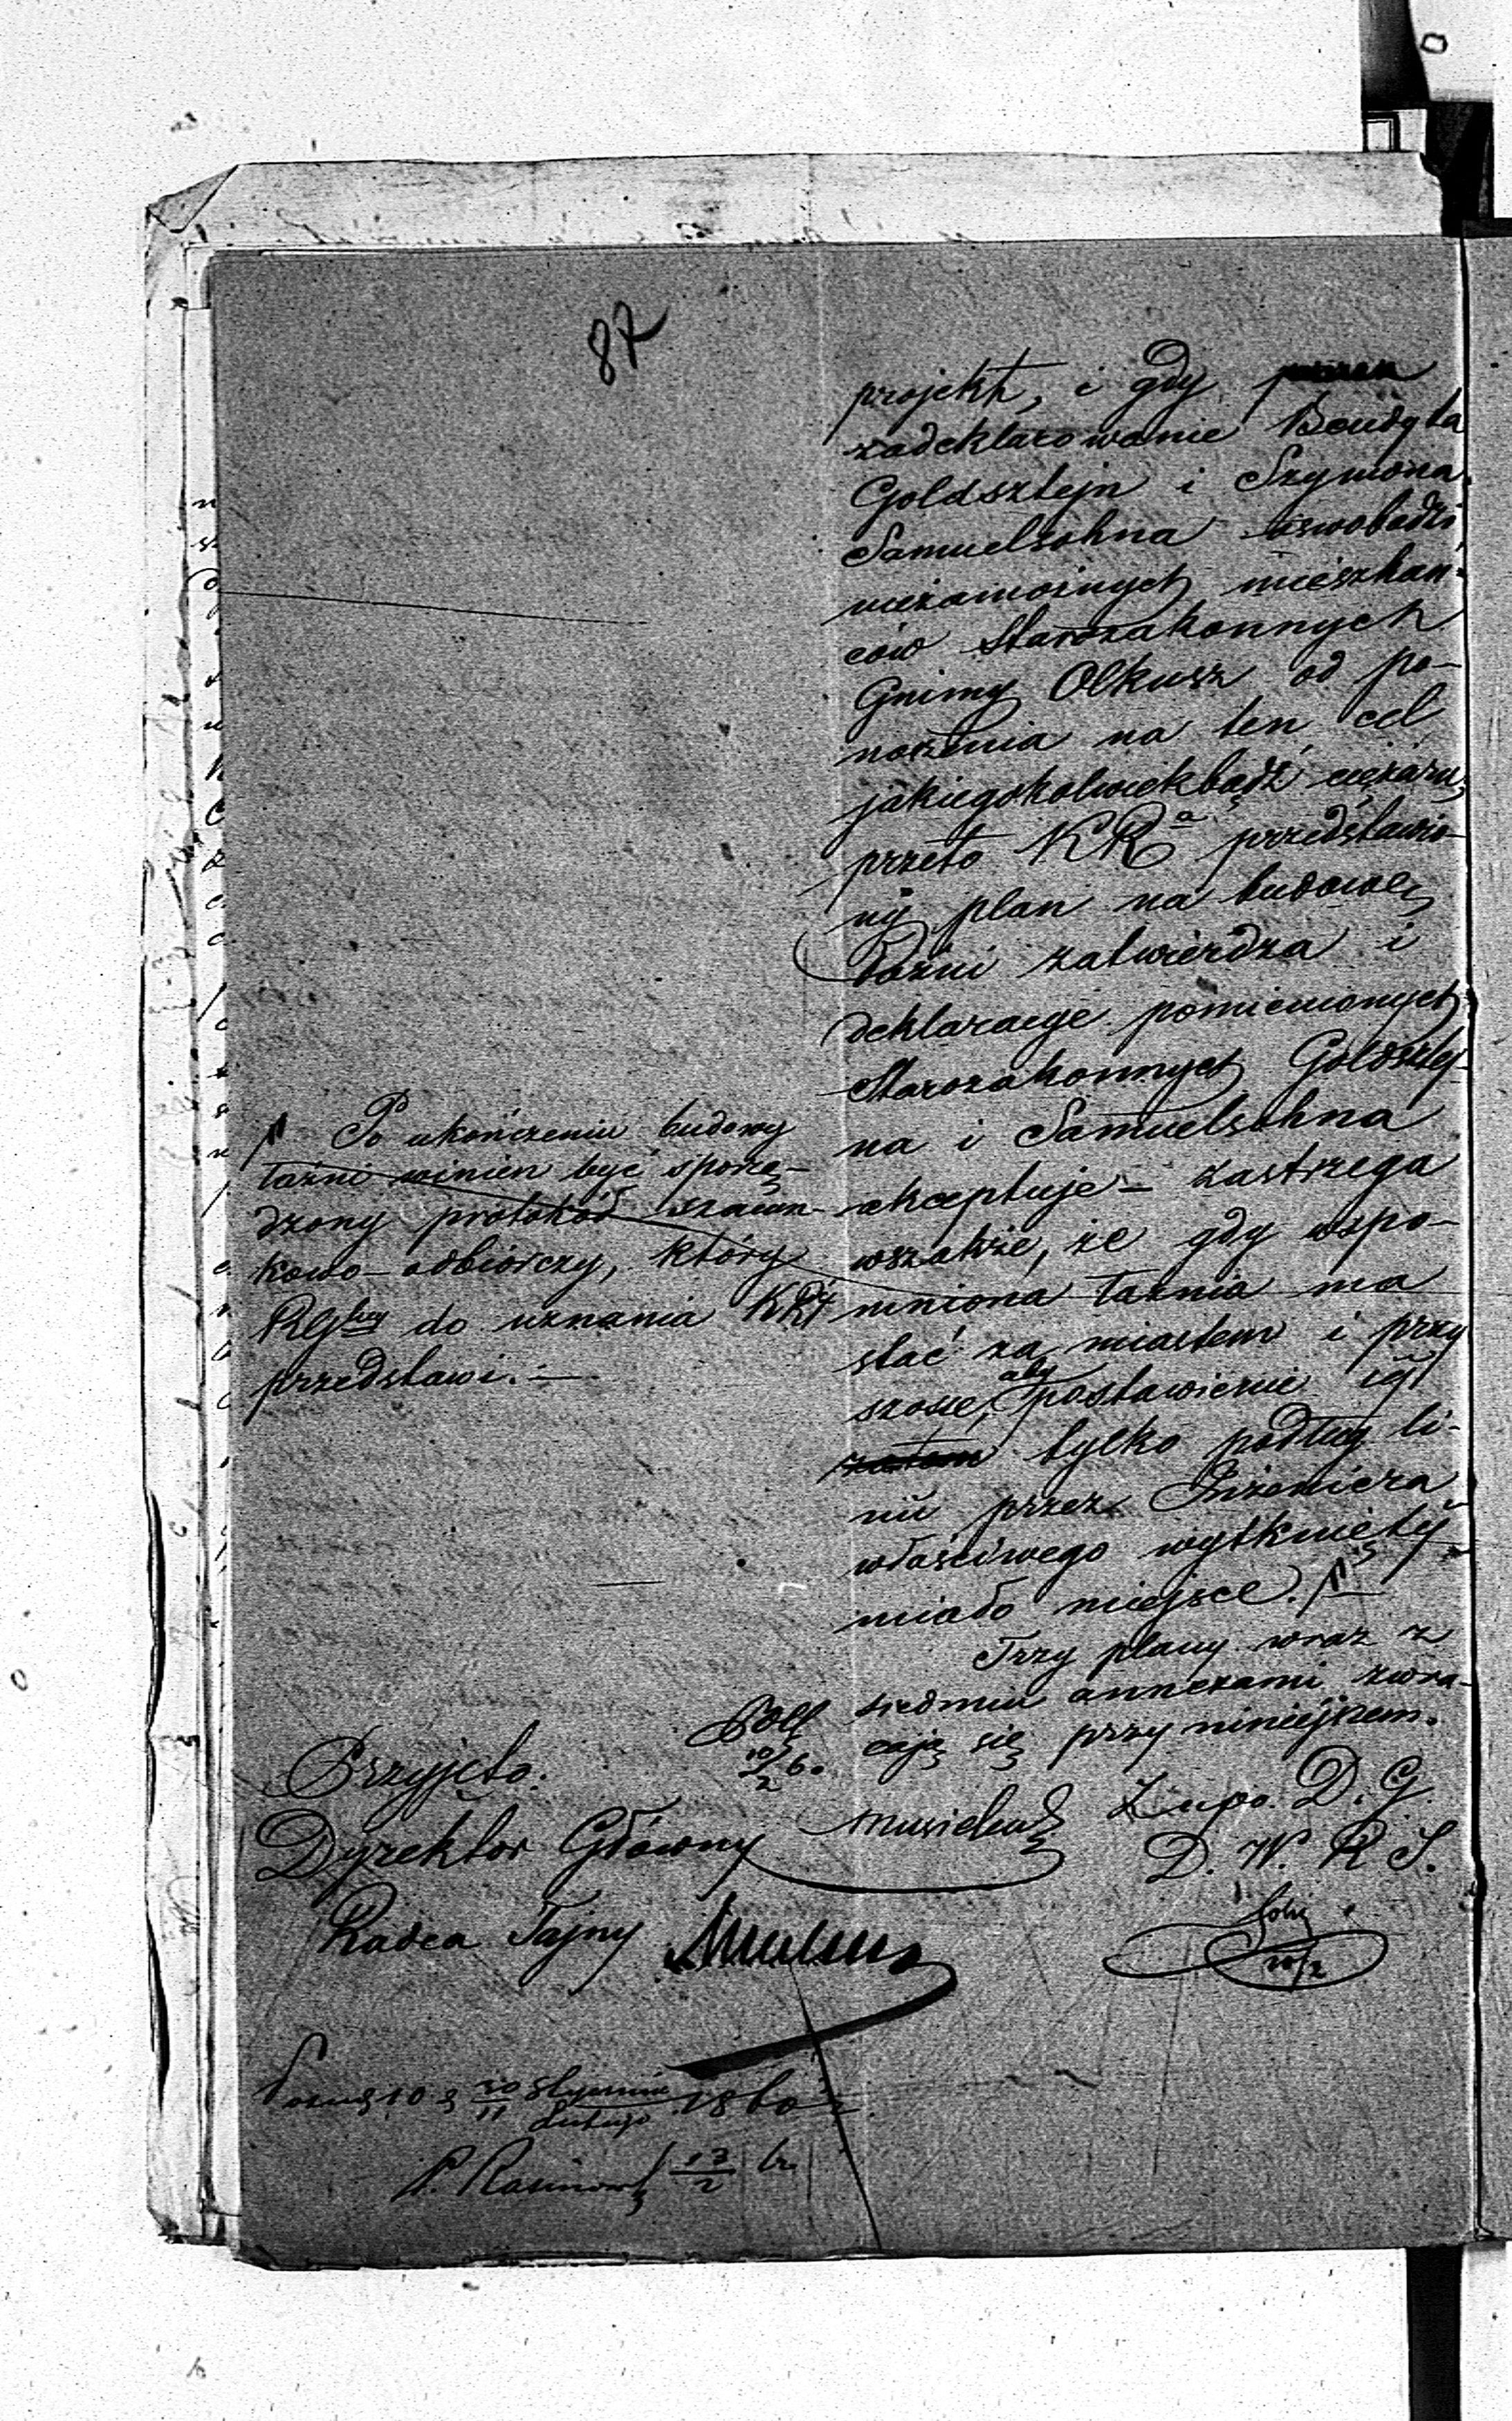 87
projekt, i gdy
zadeklarowanie Boudyta
Goldsztejn i Szymona
Samuelsohna oswobadza
niezamożnych mieszkań-
ców Starozakonnych
Gminy Olkusz od po-
noszenia na ten cel
jakiegokolwiekbądź ciężaru,
przeto KRa przedstawio-
ny plan na budowę
Łaźni zatwierdza i
deklaracye pomienionych
Starozakonnych Goldsztej-
na i Samuelsohna
akceptuje – zastrzega
wszakże, że gdy wspo-
mniona łaźnia ma
stać za miastem i przy
szosie, aby postawienie jéj
tylko podług li-
nii przez Inżeniera
właściwego wytkniętéj
miało miejsce.
Trzy plany wraz z
siedmiu annexami zwra-
cają się przy niniejszem.
Po ukończeniu budowy
łaźni winien być sporzą-
dzony protokół szacun-
kowo-odbiorczy, który
RGlny do uznania KRéj
przedstawi. –
10/2 60
Przyjęto.
Dyrektor Główny
Radca Tajny
Z upo. D. G.
D. W. R S.
10/2
30 Stycznia
11 Lutego 1860 r.
13/2